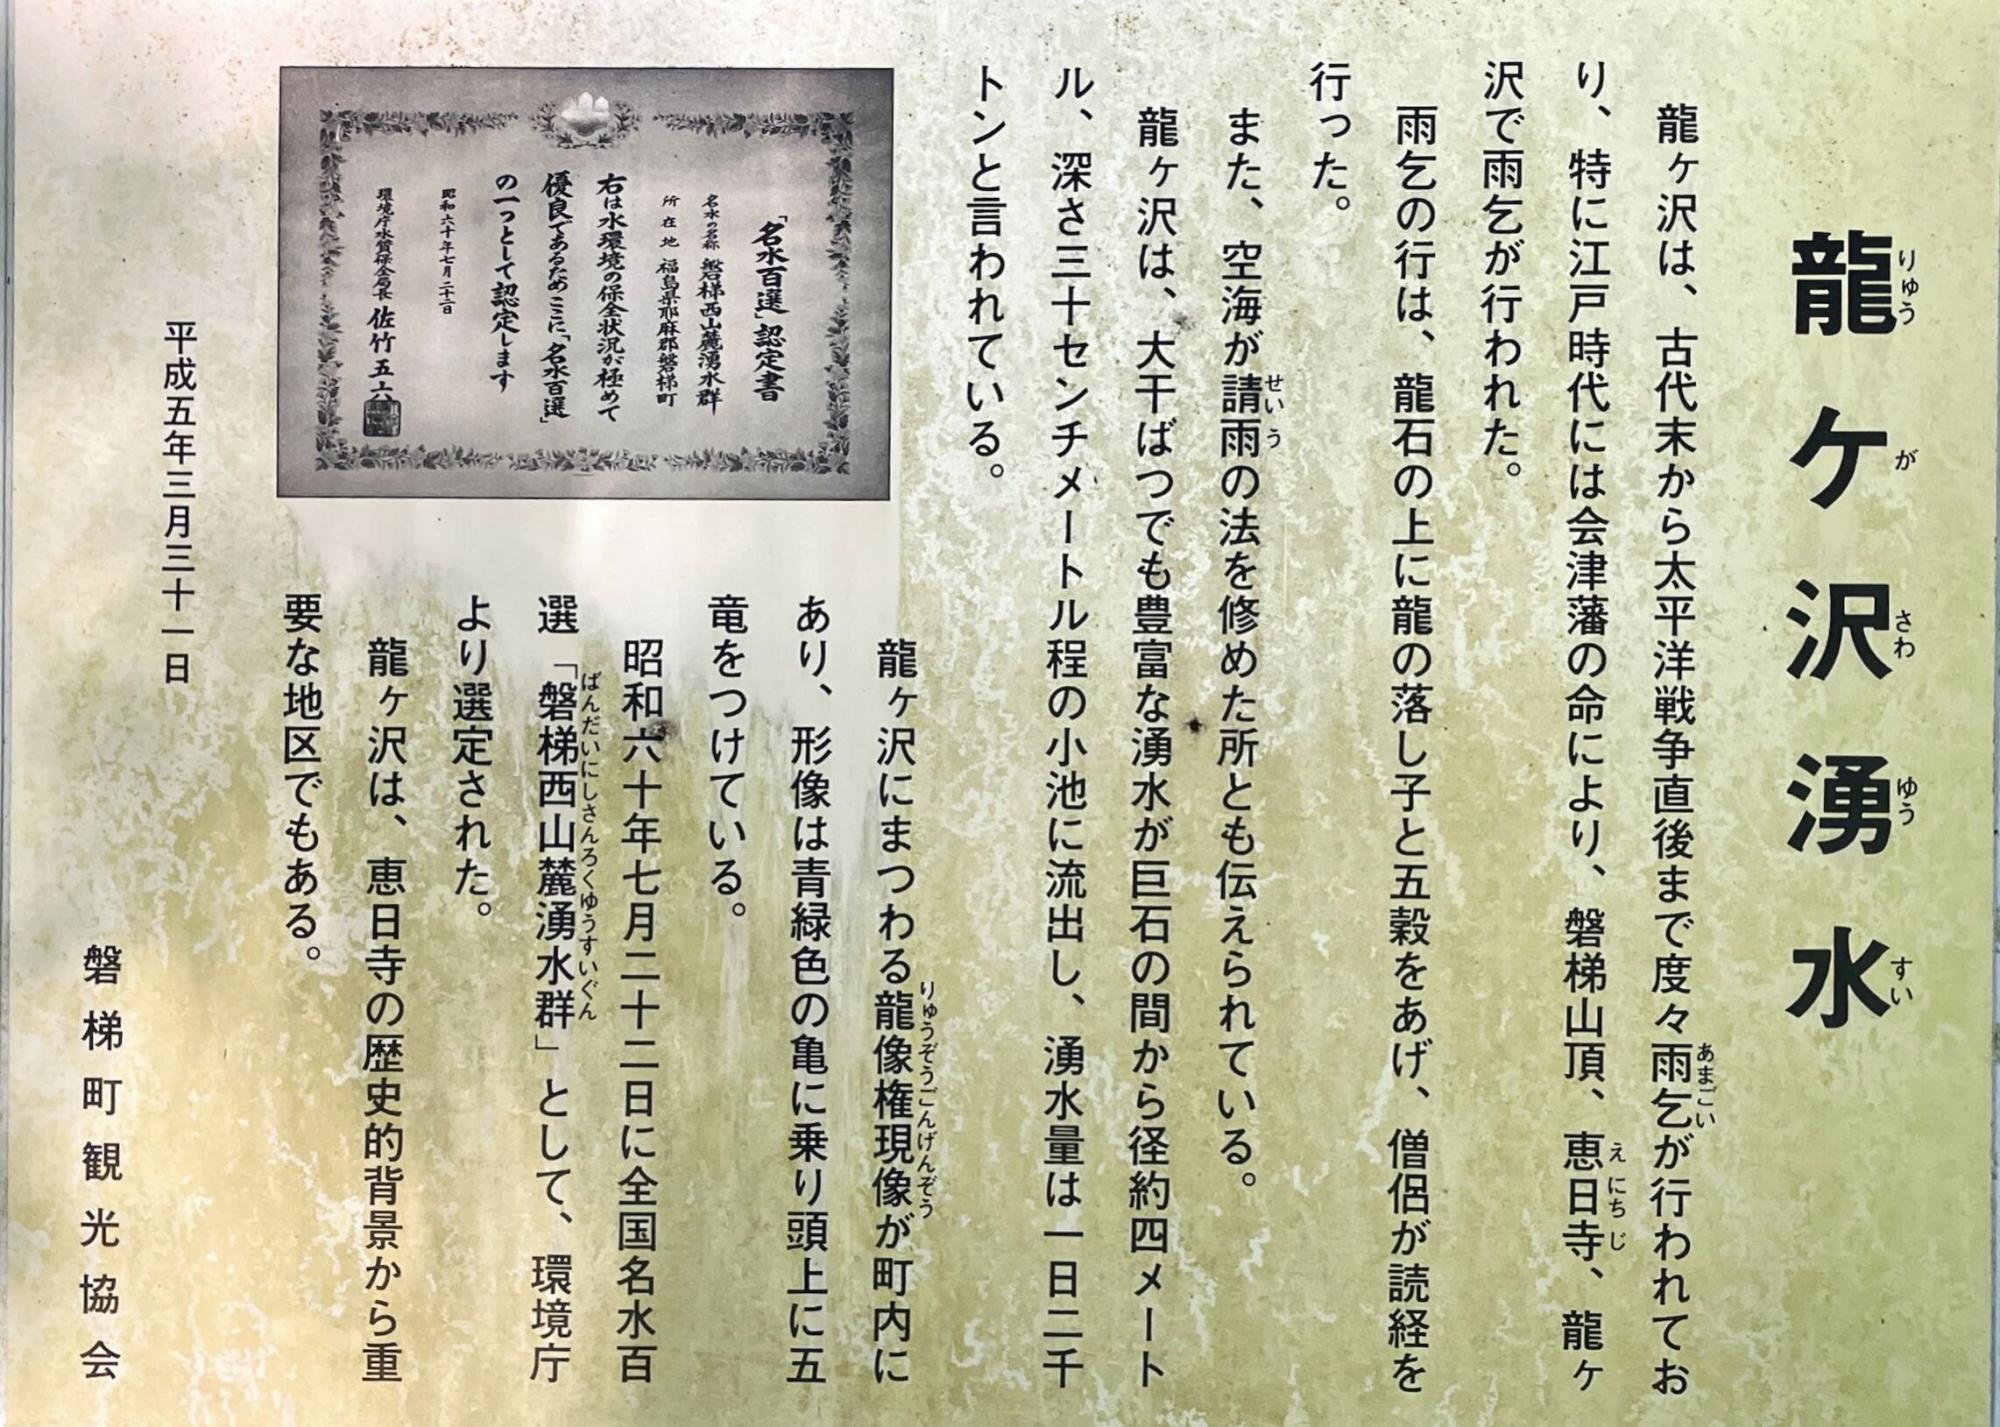 龍ヶ沢湧水
りゅうがさわゆうすい
龍ヶ沢は、古代末から太平洋戦争直後まで度々雨乞が行われてお
あまごい
り、特に江戸時代には会津藩の命により、磐梯山頂、恵日寺、龍ヶ
えにちじ
沢で雨乞が行われた。
雨乞の行は、龍石の上に龍の落し子と五穀をあげ、僧侶が読経を
行った。
また、空海が請雨の法を修めた所とも伝えられている。
せいう
龍ヶ沢は、大干ばつでも豊富な湧水が巨石の間から径約四メート
ル、深さ三十センチメートル程の小池に流出し、湧水量は一日二千
トンと言われている。
龍ヶ沢にまつわる龍像権現像が町内に
りゅうぞうごんげんぞう
あり、形像は青緑色の亀に乗り頭上に五
竜をつけている。
昭和六十年七月二十二日に全国名水百
選「磐梯西山麓湧水群」として、環境庁
ばんだいにしさんろくゆうすいぐん
より選定された。
龍ヶ沢は、恵日寺の歴史的背景から重
要な地区でもある。
「名水百選」認定書
名水の名称 磐梯西山麓湧水群
所在地 福島県耶麻郡磐梯町
右は水環境の保全状況が極めて
優良であるためここに「名水百選」
の一つとして認定します
昭和六十年七月二十二日
環境庁水質保全局長 佐竹五六
平成五年三月三十一日
磐梯町観光協会